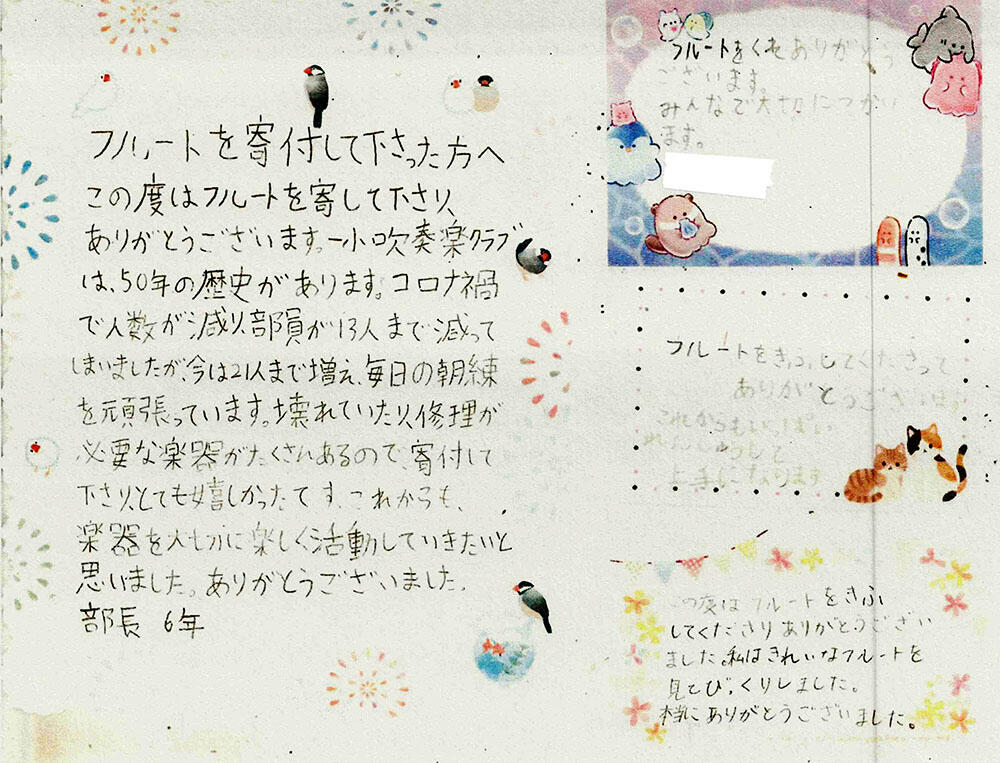 フルートを寄付して下さった方へ
この度はフルートを寄して下さり、
ありがとうございます。一小吹奏楽クラブ
は、50年の歴史があります。コロナ禍
で人数が減り、部員が13人まで減って
しまいましたが、今は21人まで増え、毎日の朝練
を頑張っています。壊れていたり、修理が
必要な楽器がたくさんあるので、寄付して
下さり、とても嬉しかったです。これからも、
楽器を大切に楽しく活動していきたいと
思いました。ありがとうございました。
部長 6年
フルートをくれありがとう
ございます。
みんなで大切につかい
ます。
フルートをきふしてくださって
ありがとうございます
これからもいっぱい
れんしゅうして
上手になります
この度はフルートをきふ
してくださりありがとうござい
ました。私はきれいなフルートを
見てびっくりしました。
本当にありがとうございました。